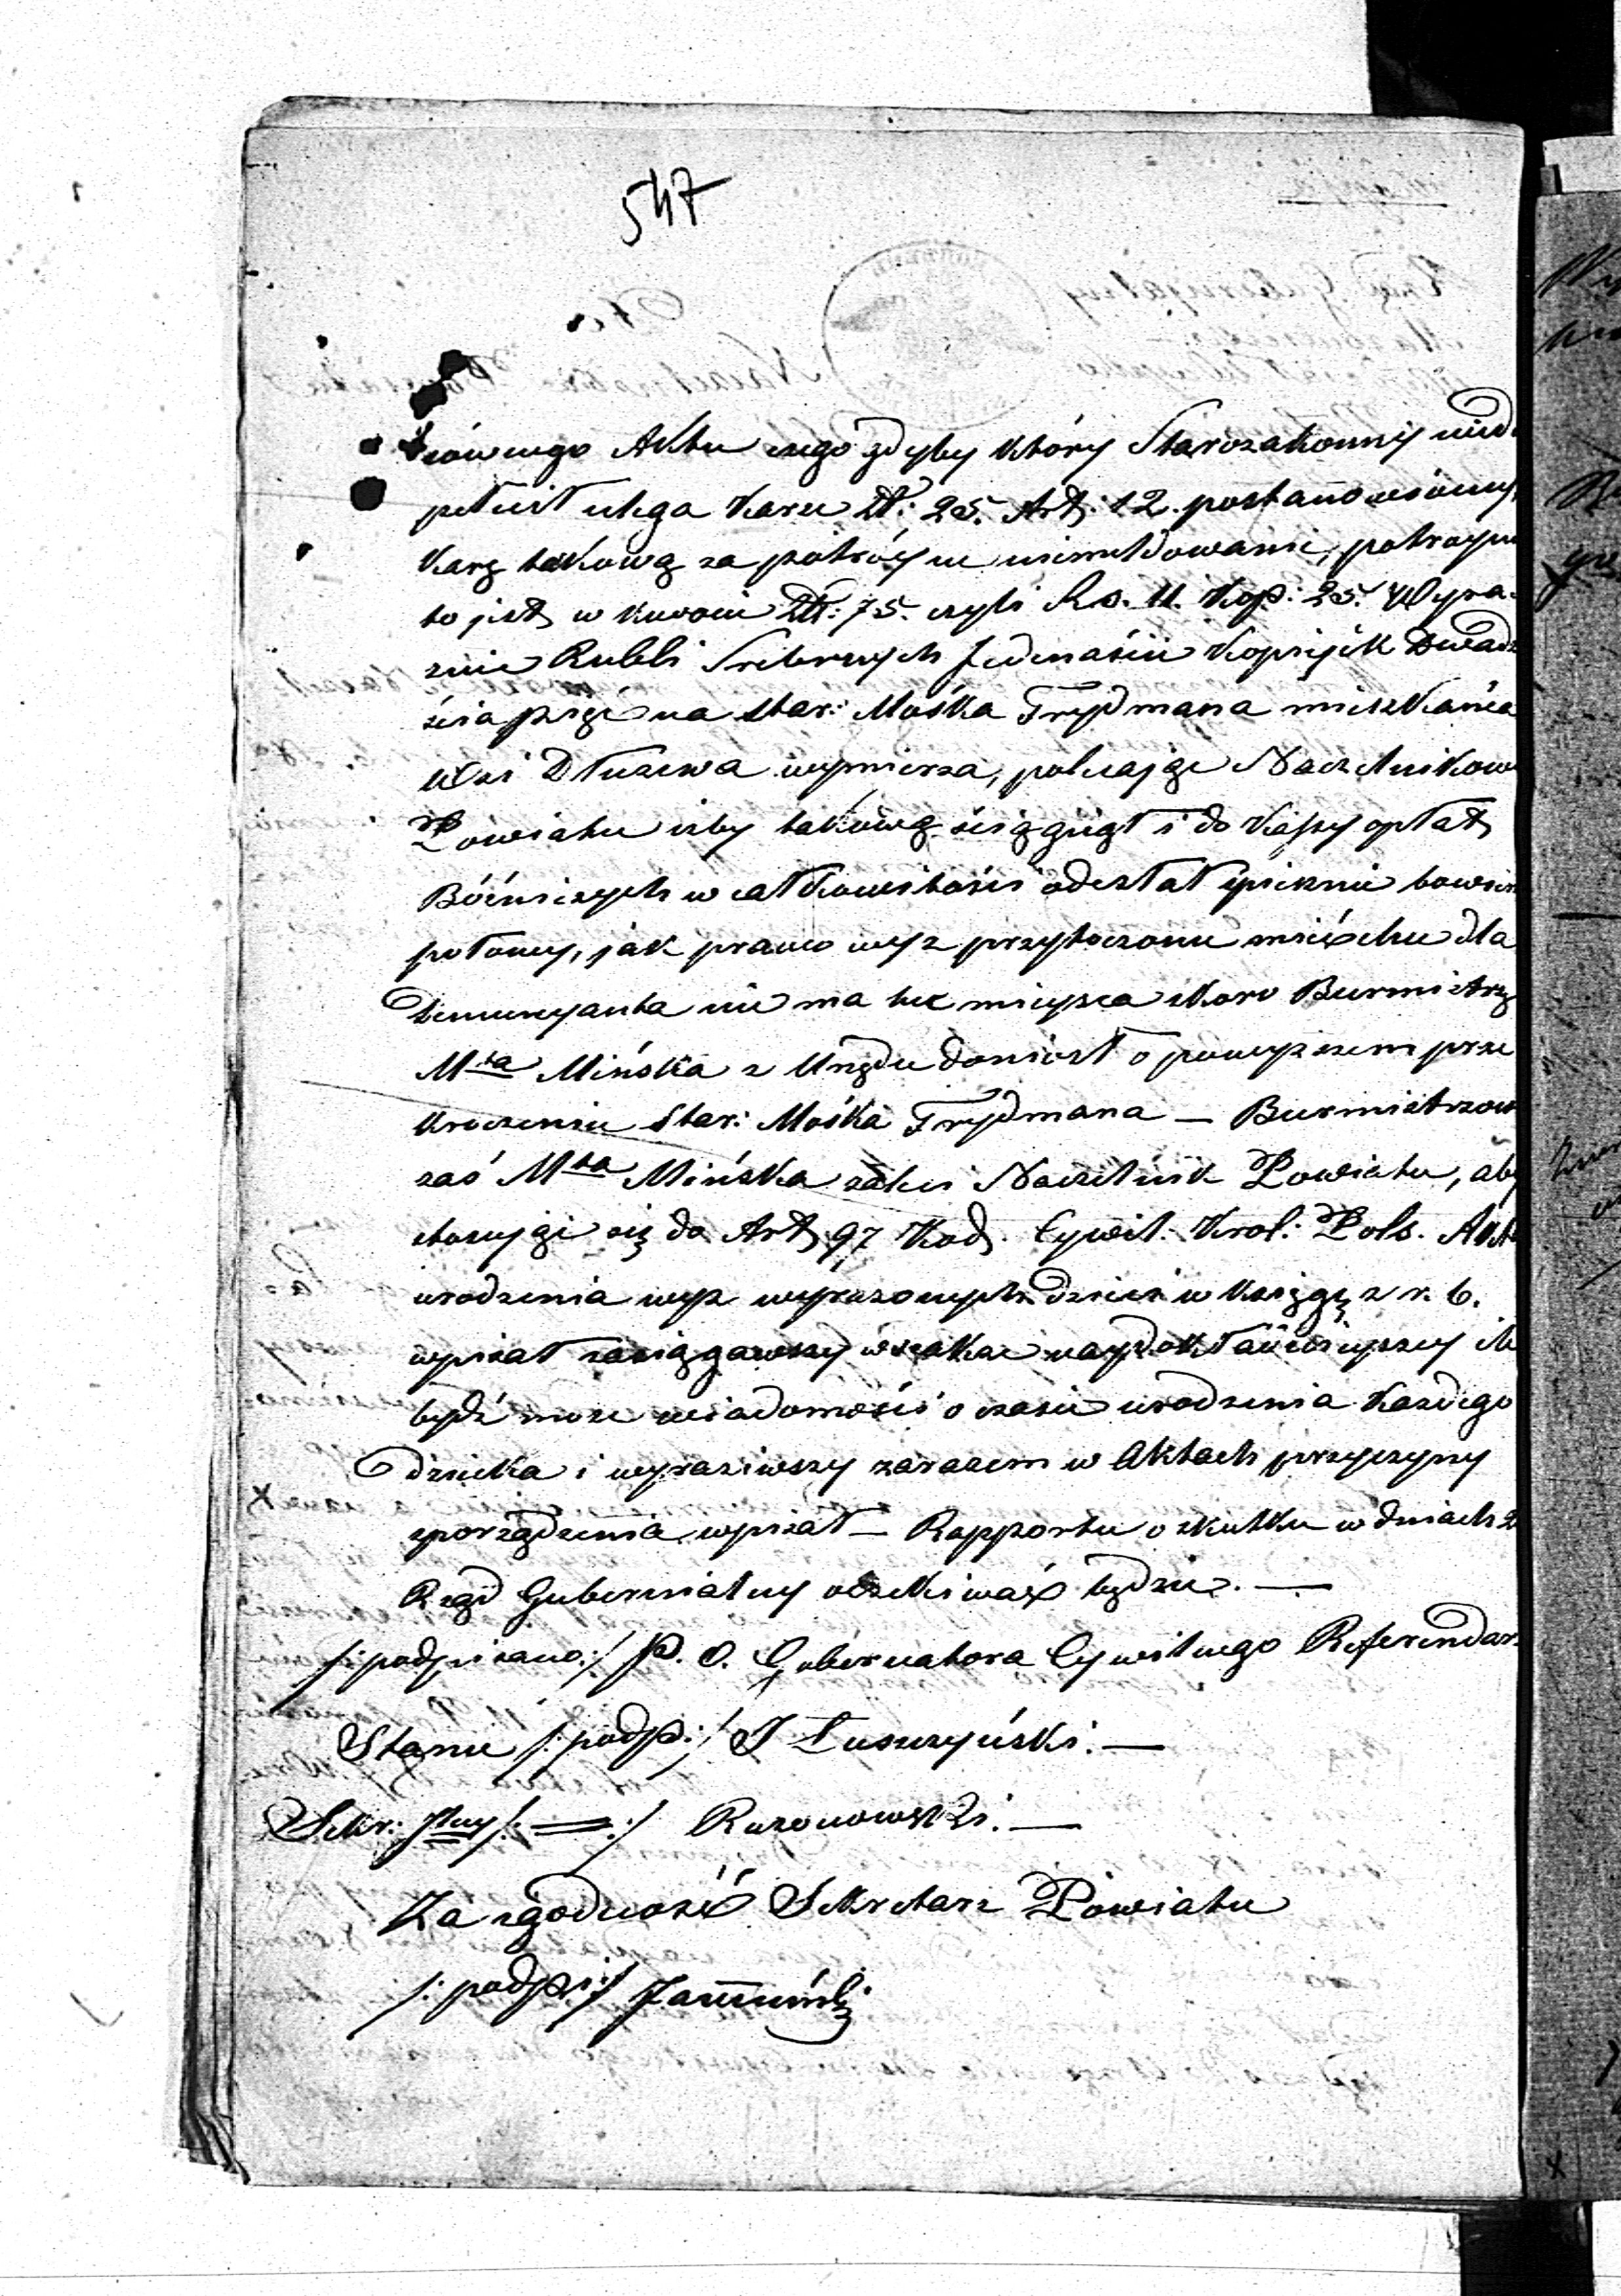 547
równego Aktu czego gdyby który Starozakonny nied
pełnił ulega karze Zł: 25. Art: 12. postanowionej
Karę takową za potrójne niemeldowanie, potrójn
to jest w kwocie Zł: 75. czyli Rs. 11. Kop: 25. Wyra-
znie Rubli Srebrnych Jedenaście Kopiejek Dwadz
ścia pięć na Star: Mośka Frydmana mieszkańca
Wsi Dłużewa wymierza, polecając Naczelnikow
Powiatu iżby takową ściągnął i do Kassy opłat
Bóżniczych w całkowitości odesłał
połowy, jak prawo wyż przytoczone mieć chce dla
Denuncyanta nie ma tu miejsca skoro Burmistrz
Mta Mińska z Urzędu doniósł o powyższem prze
kroczeniu Star: Mośka Frydmana — Burmistrzow
zaś Mta Mińska zaleci Naczelnik Powiatu, aby
stosując się do Art 97 Kod. Cywil. Krol: Pols. Akt
urodzenia wyż wyrażonych dzieci w Księgę z r. b.
wpisał zasiągnąwszy wszakże najdokładniejszej ile
bydź może wiadomości o czasie urodzenia każdego
dziecka i wyraziwszy zarazem w Aktach przyczyny
sporządzenia wpisał — Rapportu o skutku w dniach 2
Rząd Gubernialny oczekiwać będzie. —
/: podpisano :/ P. O. Gubernatora Cywilnego Referendarz
Stanu /: podp :/ J Łuszczyński. —
Sekr: Jlny /: = :/ Rozonowski. —
Za zgodność Sekretarz Powiatu
/: podpi :/